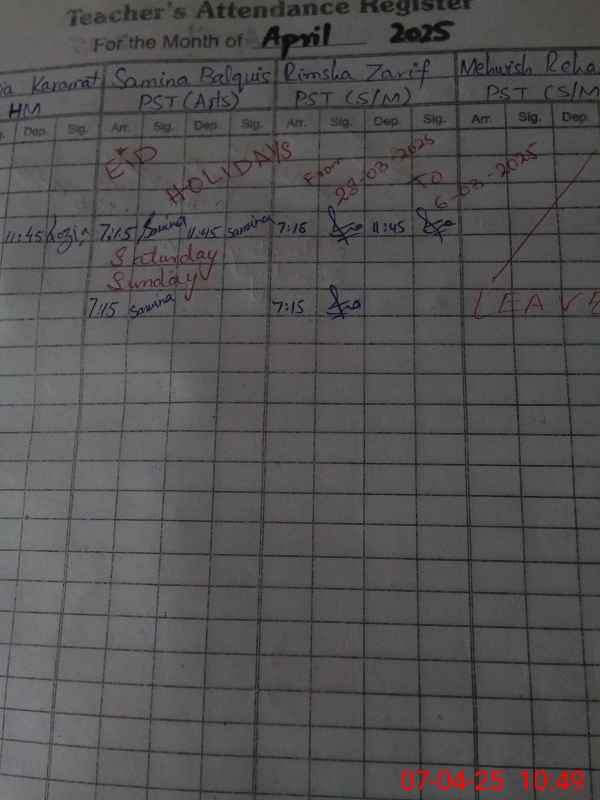 Teacher's Attendance Register
For the Month of April 2025
Karamat Samina Balquis Rimsha Zarif Mehwish Reha
HM PST (Arts) PST (S/M) PST (S/M
Dep. Sig. Arr. Sig. Dep. Sig. Arr. Sig. Dep. Sig. Arr. Sig. Dep.
EID HOLIDAYS From 28-03-2025 TO 6-03-2025
11:45 7:15 Samina 11:45 Samina 7:15 11:45
Saturday
Sunday
7:15 Samina 7:15 LEAVE
07-04-25 10:49